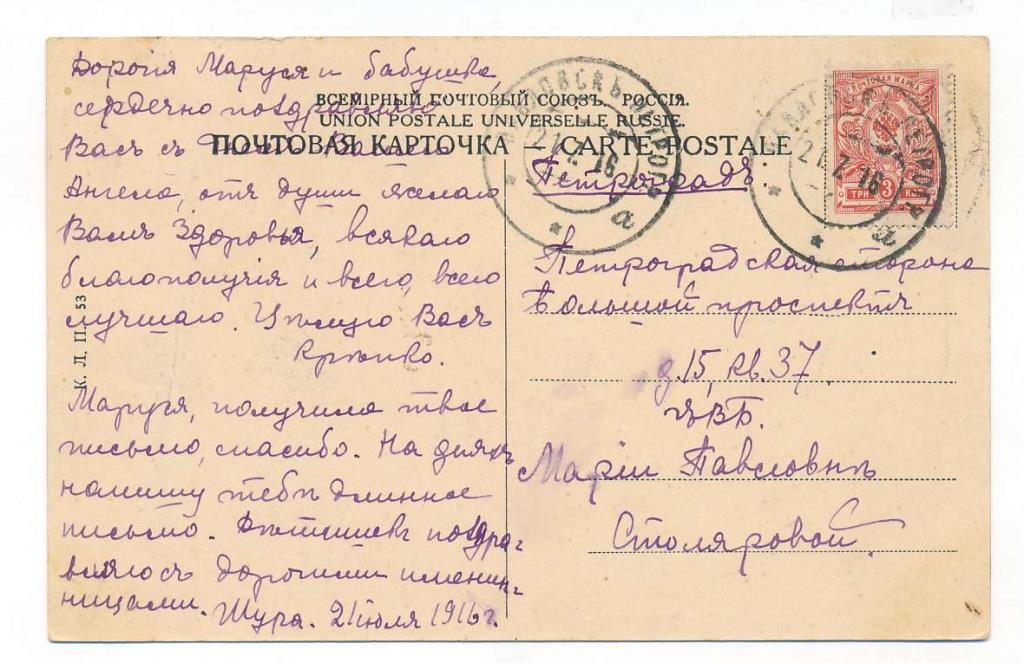 Дорогія Маруся и бабушка,
сердечно поздравляю
Васъ съ Днемъ Вашего
Ангела, отъ души желаю
Вамъ здоровья, всякаго
благополучія и всего, всего
лучшаго. Цѣлую Васъ
крѣпко.
Маруся, получила твое
письмо, спасибо. На дняхъ
напишу тебѣ длинное
письмо.
дорогими именин-
ницами. Шура. 21 іюля 1916 г.
К. Л. П. 53
ВСЕМІРНЫЙ ПОЧТОВЫЙ СОЮЗЪ. РОССІЯ.
UNION POSTALE UNIVERSELLE RUSSIE.
ПОЧТОВАЯ КАРТОЧКА — CARTE POSTALE
21.7.16
а
ПОЧТОВАЯ МАРКА
ТРИ 3 КОП
21.7.16
а
Петроградъ.
Петроградская сторона
Большой проспектъ
д. 15, кв. 37.
ЕВБ.
Маріи Павловнѣ
Столяровой.